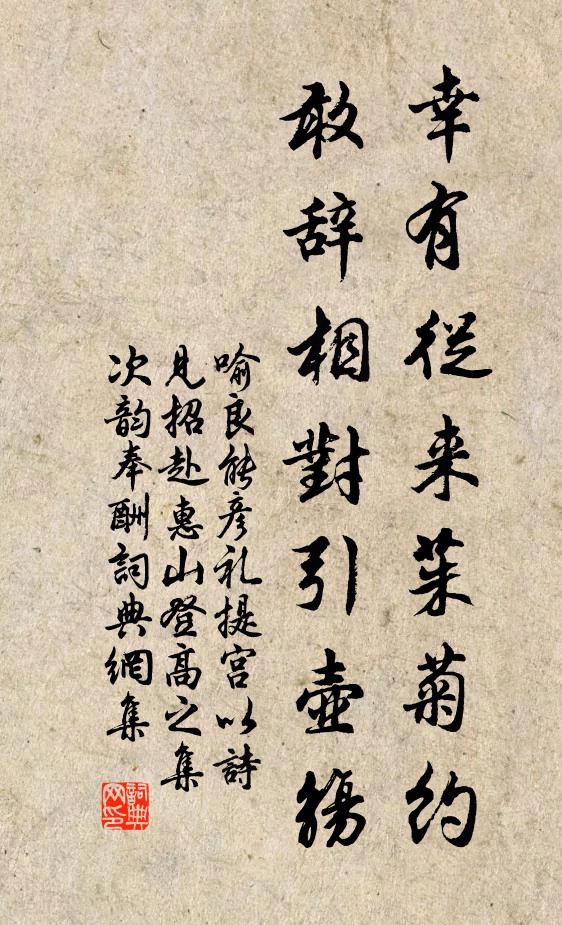 幸有從来茱菊約
敢辞相對引壺觴
喻良能彦礼提宫以詩
見招赴惠山登高之集
次韵奉酬詞典網集
詞典网印